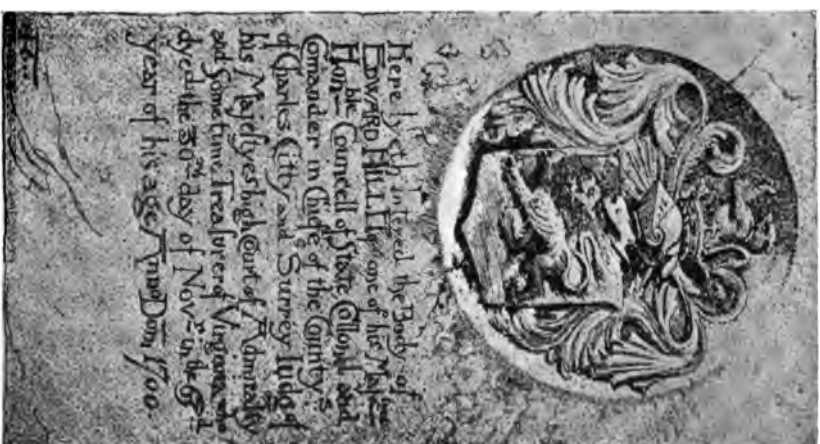 Here lyeth intered the Body of
EDWARD HILL Esqr one of his Majties
Honble Councell of State, Collonel and
Comander in Cheife of the County's
of Charles Citty and Surrey Iudg of
his Majestyes high Court of Admiralty
and Sometime Treasurer of Virginia who
dyed the 30th day of Novr in the 63d
year of his age Anno Dom 1700